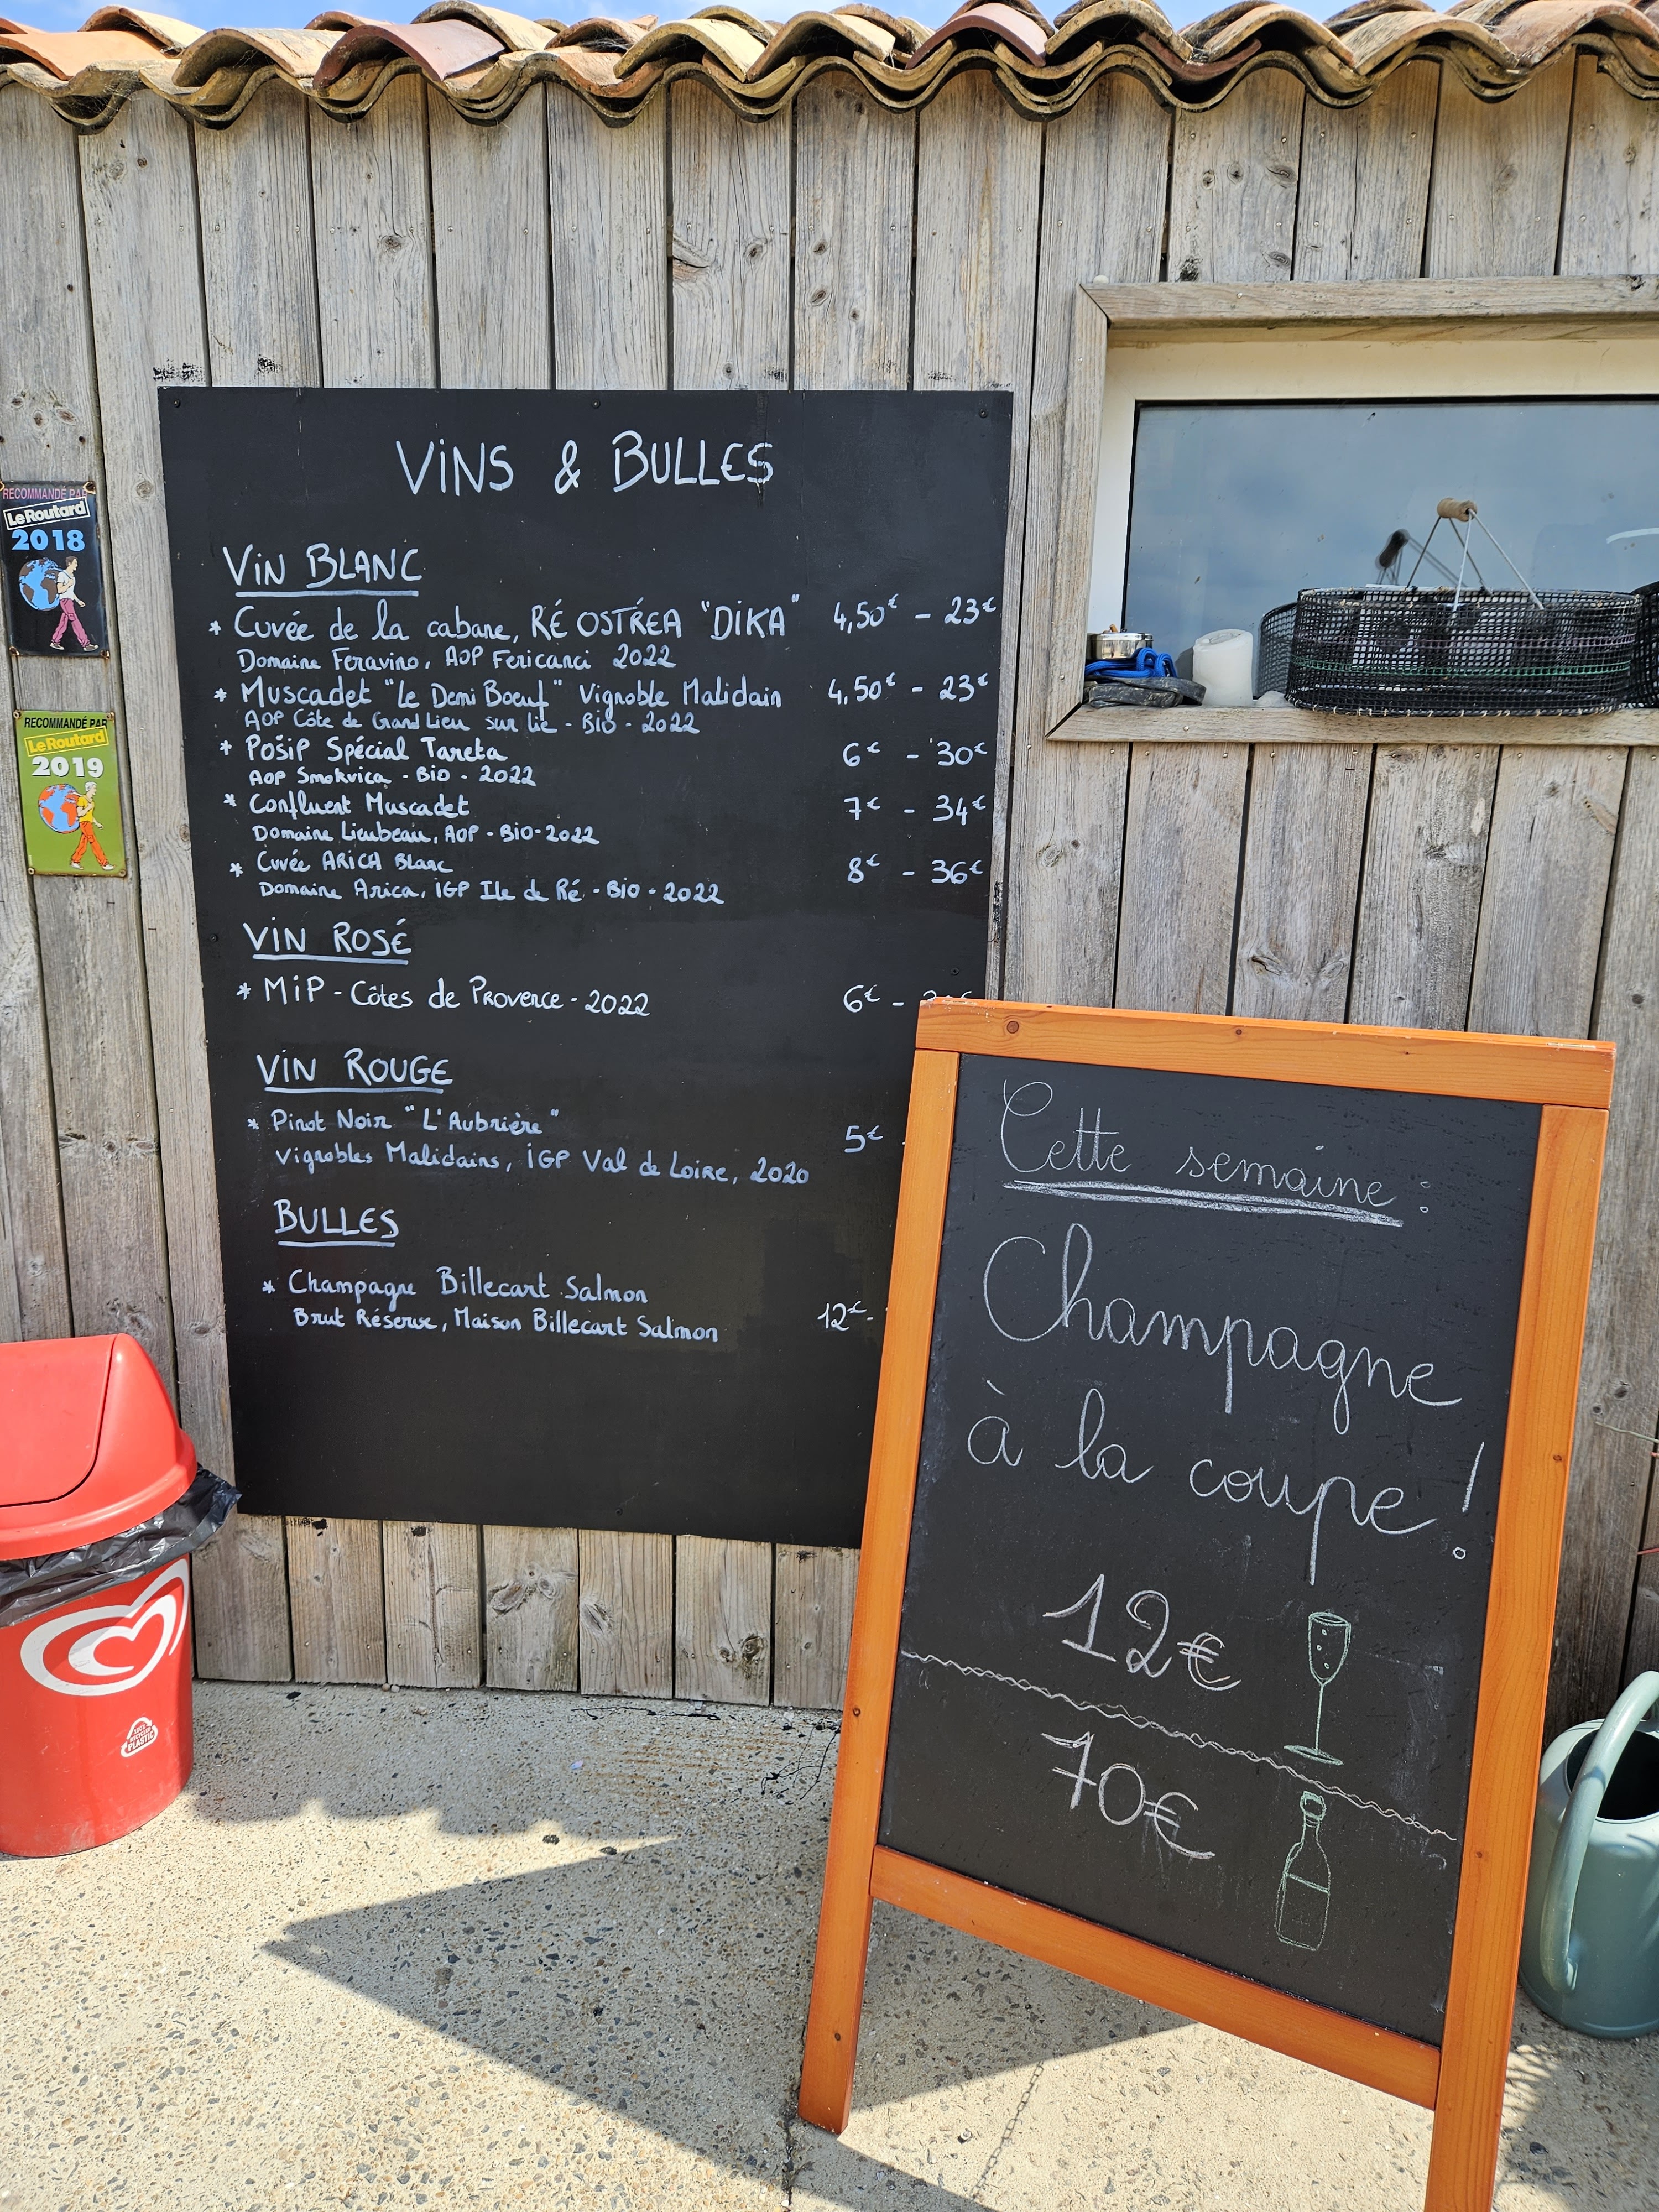 RECOMMANDÉ PAR
Le Routard
2018
RECOMMANDÉ PAR
Le Routard
2019
ViNS & BULLES
ViN BLANC
* Cuvée de la cabane, RÉ OSTRÉA "DiKA" 4,50€ - 23€
Domaine Feravino, AOP Fericanci 2022
* Muscadet "Le Demi Boeuf" Vignoble Malidain 4,50€ - 23€
AOP Côte de Grand Lieu sur lie - BiO - 2022
* POŠiP Spécial Tareta 6€ - 30€
AOP Smokvica - BiO - 2022
* Confluent Muscadet 7€ - 34€
Domaine Lieubeau, AOP - BiO - 2022
* Cuvée ARiCA Blanc 8€ - 36€
Domaine Arica, iGP Ile de Ré - BiO - 2022
ViN ROSÉ
* MiP - Côtes de Provence - 2022 6€ -
ViN ROUGE
* Pinot Noir "L'Aubrière" 5€
Vignobles Malidains, iGP Val de Loire, 2020
BULLES
* Champagne Billecart Salmon
Brut Réserve, Maison Billecart Salmon 12€ -
Cette semaine :
Champagne
à la coupe !
12€
70€
PLASTIC